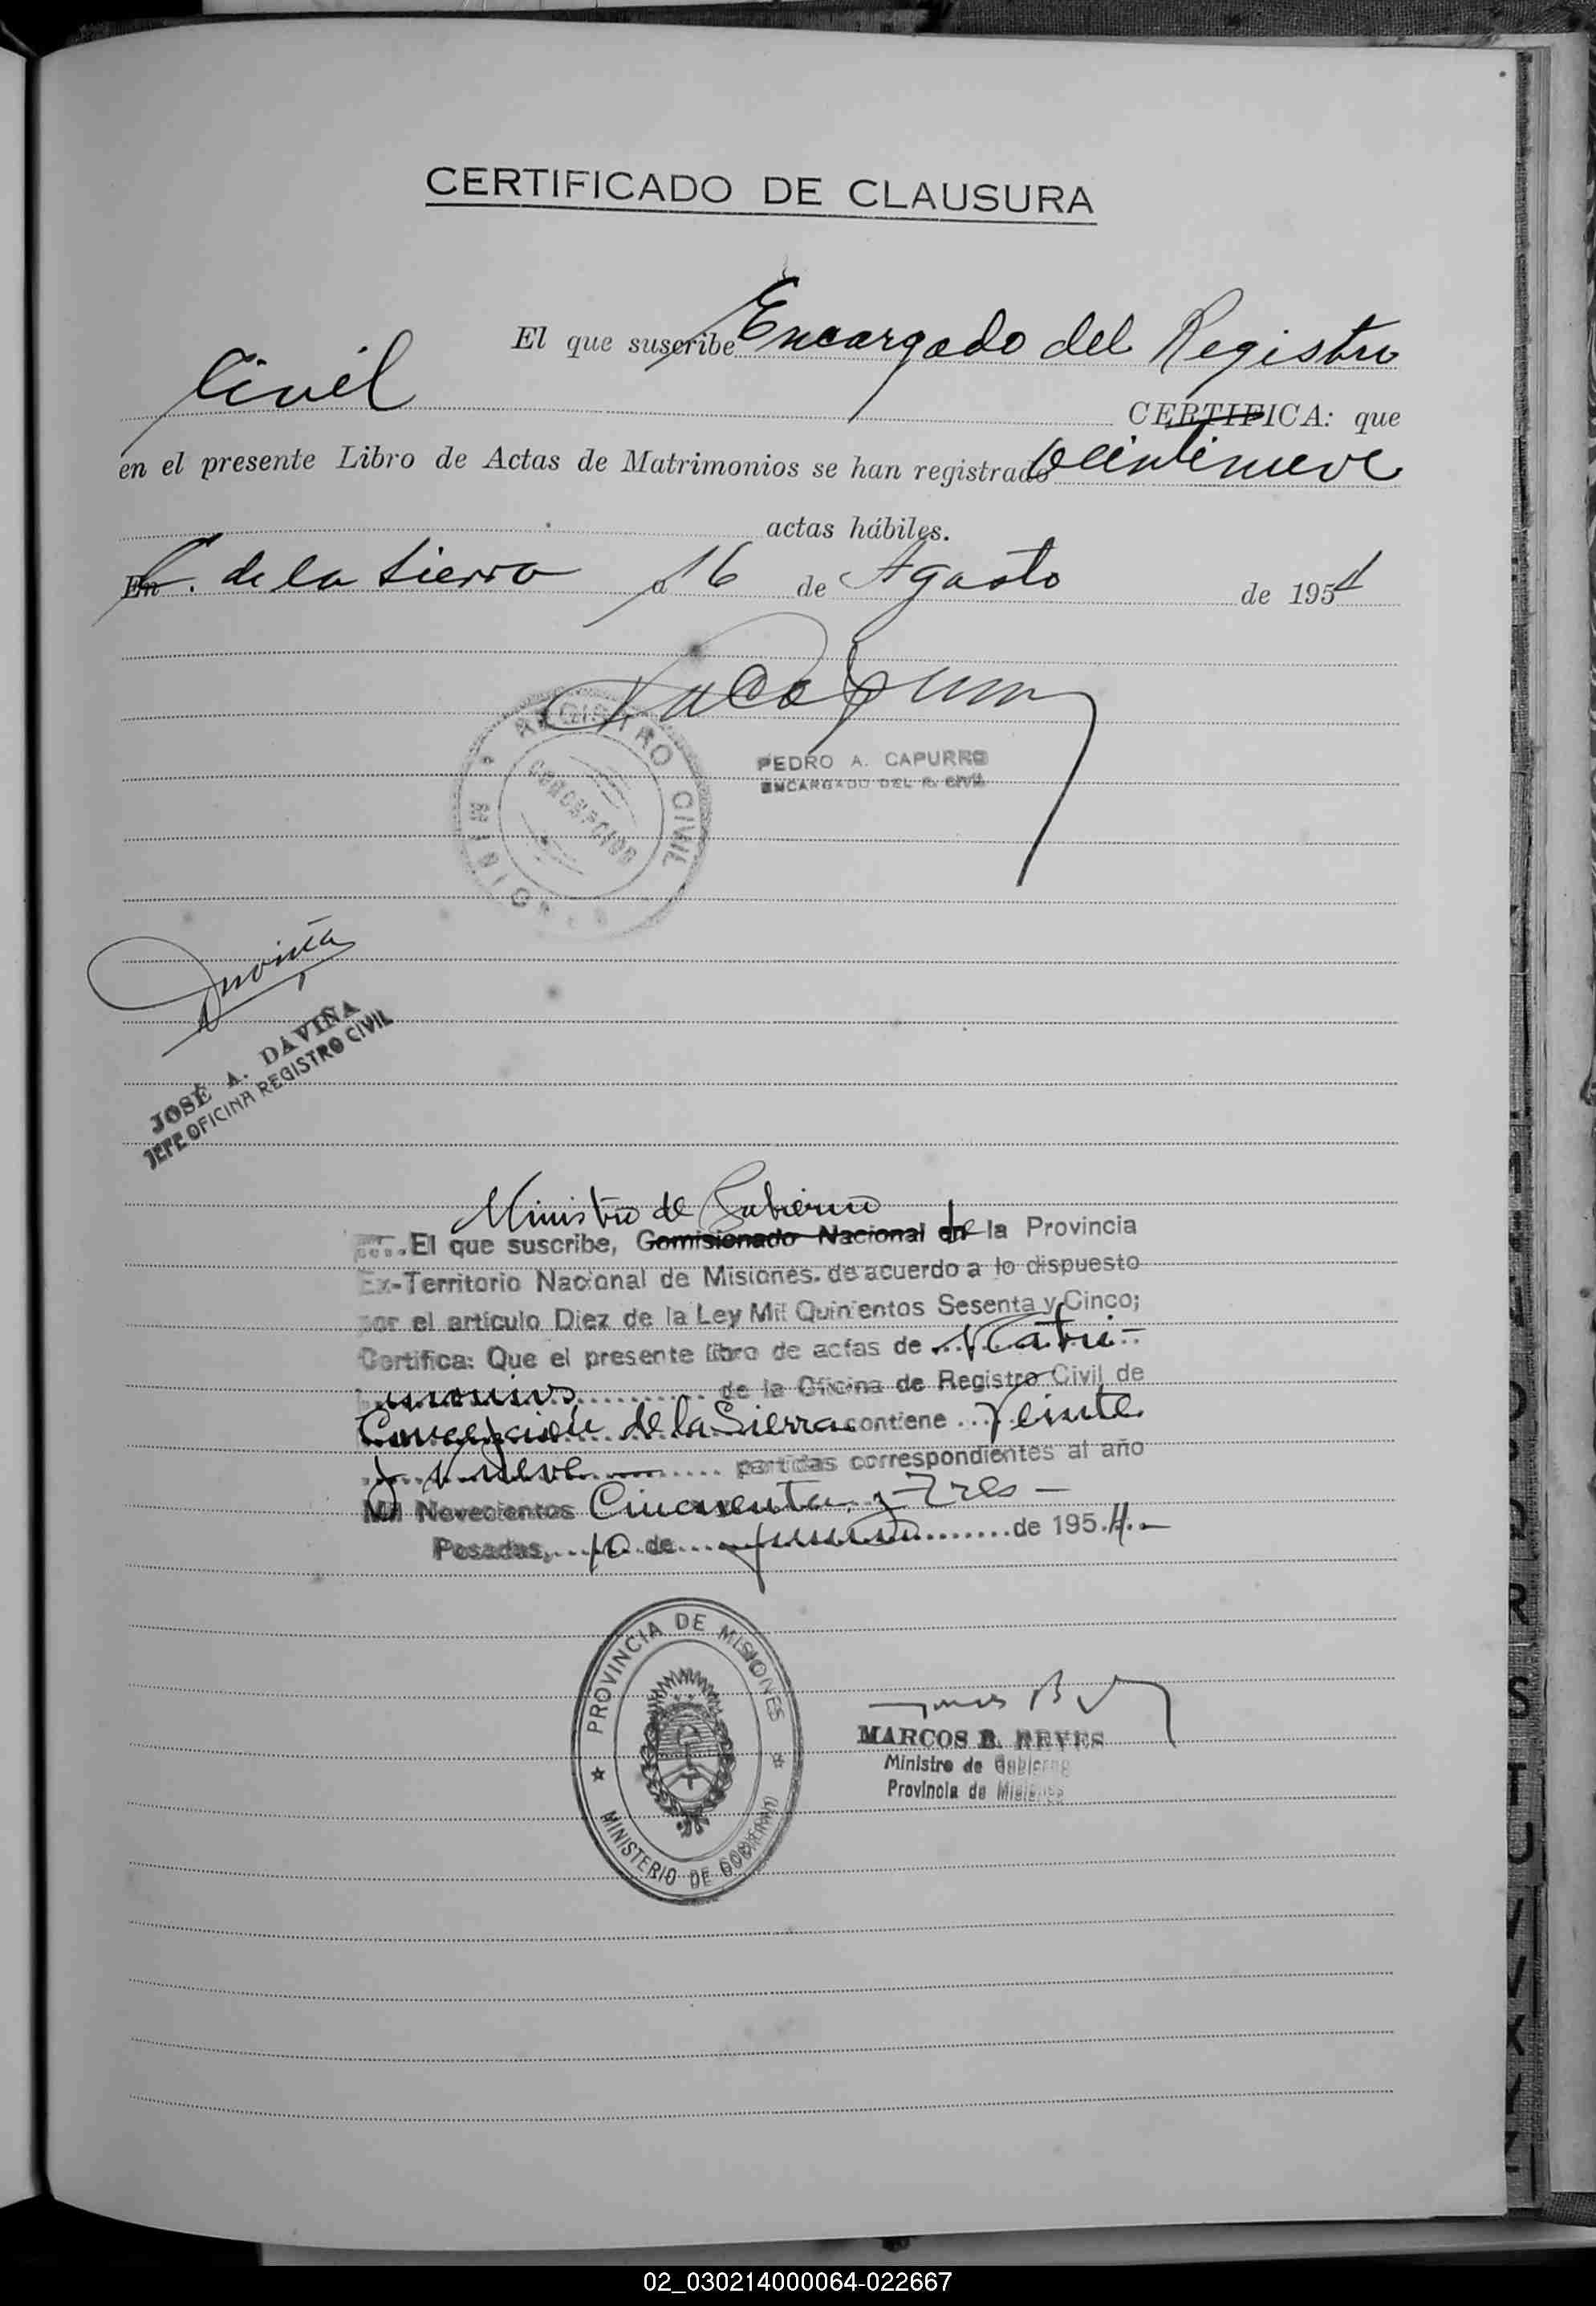 CERTIFICADO DE CLAUSURA
El que suscribe Encargado del Registro
Civil CERTIFICA: que
en el presente Libro de Actas de Matrimonios se han registrado veintinueve
actas hábiles.
En C. de la Sierra a 16 de Agosto de 1954
REGISTRO CIVIL
CONCEPCION
MISIONES
PEDRO A. CAPURRO
ENCARGADO DEL R. CIVIL
Daviña
JOSÉ A. DAVIÑA
JEFE OFICINA REGISTRO CIVIL
Ministro de Gobierno
El que suscribe, Comisionado Nacional en de la Provincia
Ex-Territorio Nacional de Misiones. de acuerdo a lo dispuesto
por el artículo Diez de la Ley Mil Quinientos Sesenta y Cinco;
Certifica: Que el presente libro de actas de Matri-
monios de la Oficina de Registro Civil de
Concepción de la Sierra contiene Veinte
y Nueve partidas correspondientes al año
Mil Novecientos Cincuenta y Tres
Posadas, 10 de de 1954.-
PROVINCIA DE MISIONES
MINISTERIO DE GOBIERNO
MARCOS B. REYES
Ministro de Gobierno
Provincia de Misiones
02_030214000064-022667